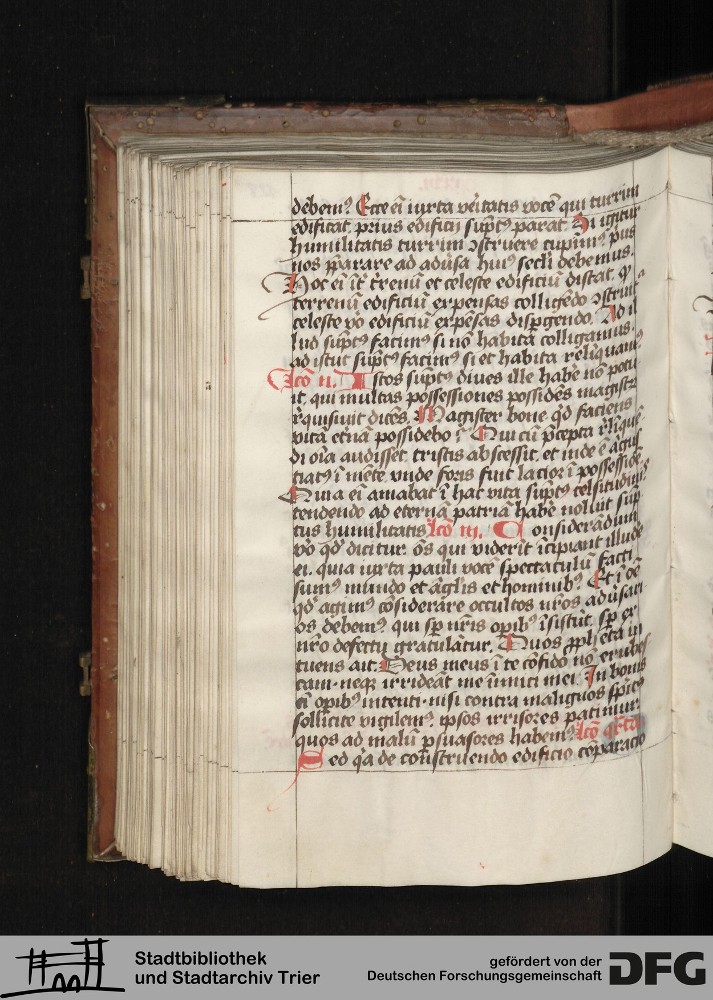 debem⁹. Ecce ei᷒ iuxta veritatis vocē qui turrim
edificat, prius edificii supt⁹ parat. Si igitur
humilitatis turrim ꝯstruere cupim⁹, pus
nos p̄parare ad adūsa hui⁹ secli debemus.
Hoc ei᷒ īt̄ t̄renū et celeste edificiū distat, qꝫ
terrenū edificiū expensas colligēdo ꝯstruit
celeste vo edificiū expēsas disp̱gendo. Ad il
lud supt⁹ facim⁹ si nō habita colligamus.
ad istut supt⁹ facim⁹ si et habita reliquam⁹
Lcō ii. Istos supt⁹ diues ille habē nō potu
it, qui multas possessiones possidēs magistrū
r̄quisiuit dicēs. Magister bone qd faciens
vitā etnā possidebo ? Qui cū p̄cepta r̄linquē
di oīa audisset, tristis abscessit, et inde ē āgus
tiat⁹ ī mēte, vnde foris fuit lacior ī possessiōe
Quia ei᷒ amabat ī hac vita supt⁹ celsitudinis
tendendo ad eternā patriā habē noluit sup
tus humilitatis Lcō iii. Considerādum
vo qd̄ dicitur. oēs qui viderīt īcipiant illude
ei. quia iuxta pauli vocē spectaculū facti
sum⁹ mundo et āglis et hominib⁹. Et ī oē
qd̄ agim⁹ cōsiderare occultos nr̄os adūsari
os debem⁹. qui sp̄ nr̄is opib⁹ īsistūt. sp̄ ex
nr̄o defectu gratulātur. Quos ꝓpheta in
tuens ait. Deus meus ī te cōfido nō erubes
cam. neqꝫ irrideāt me īimici mei. In bonis
ei᷒ opib⁹ intenti. nisi contra malignos sp̄it⁹
sollicite vigilem⁹. ipsos irrisores patimur.
quos ad malū p̱suasores habem⁹. Lcō qr̄ta
Sed qa de construendo edificio cōparacio
Stadtbibliothek
und Stadtarchiv Trier
gefördert von der
Deutschen Forschungsgemeinschaft
DFG